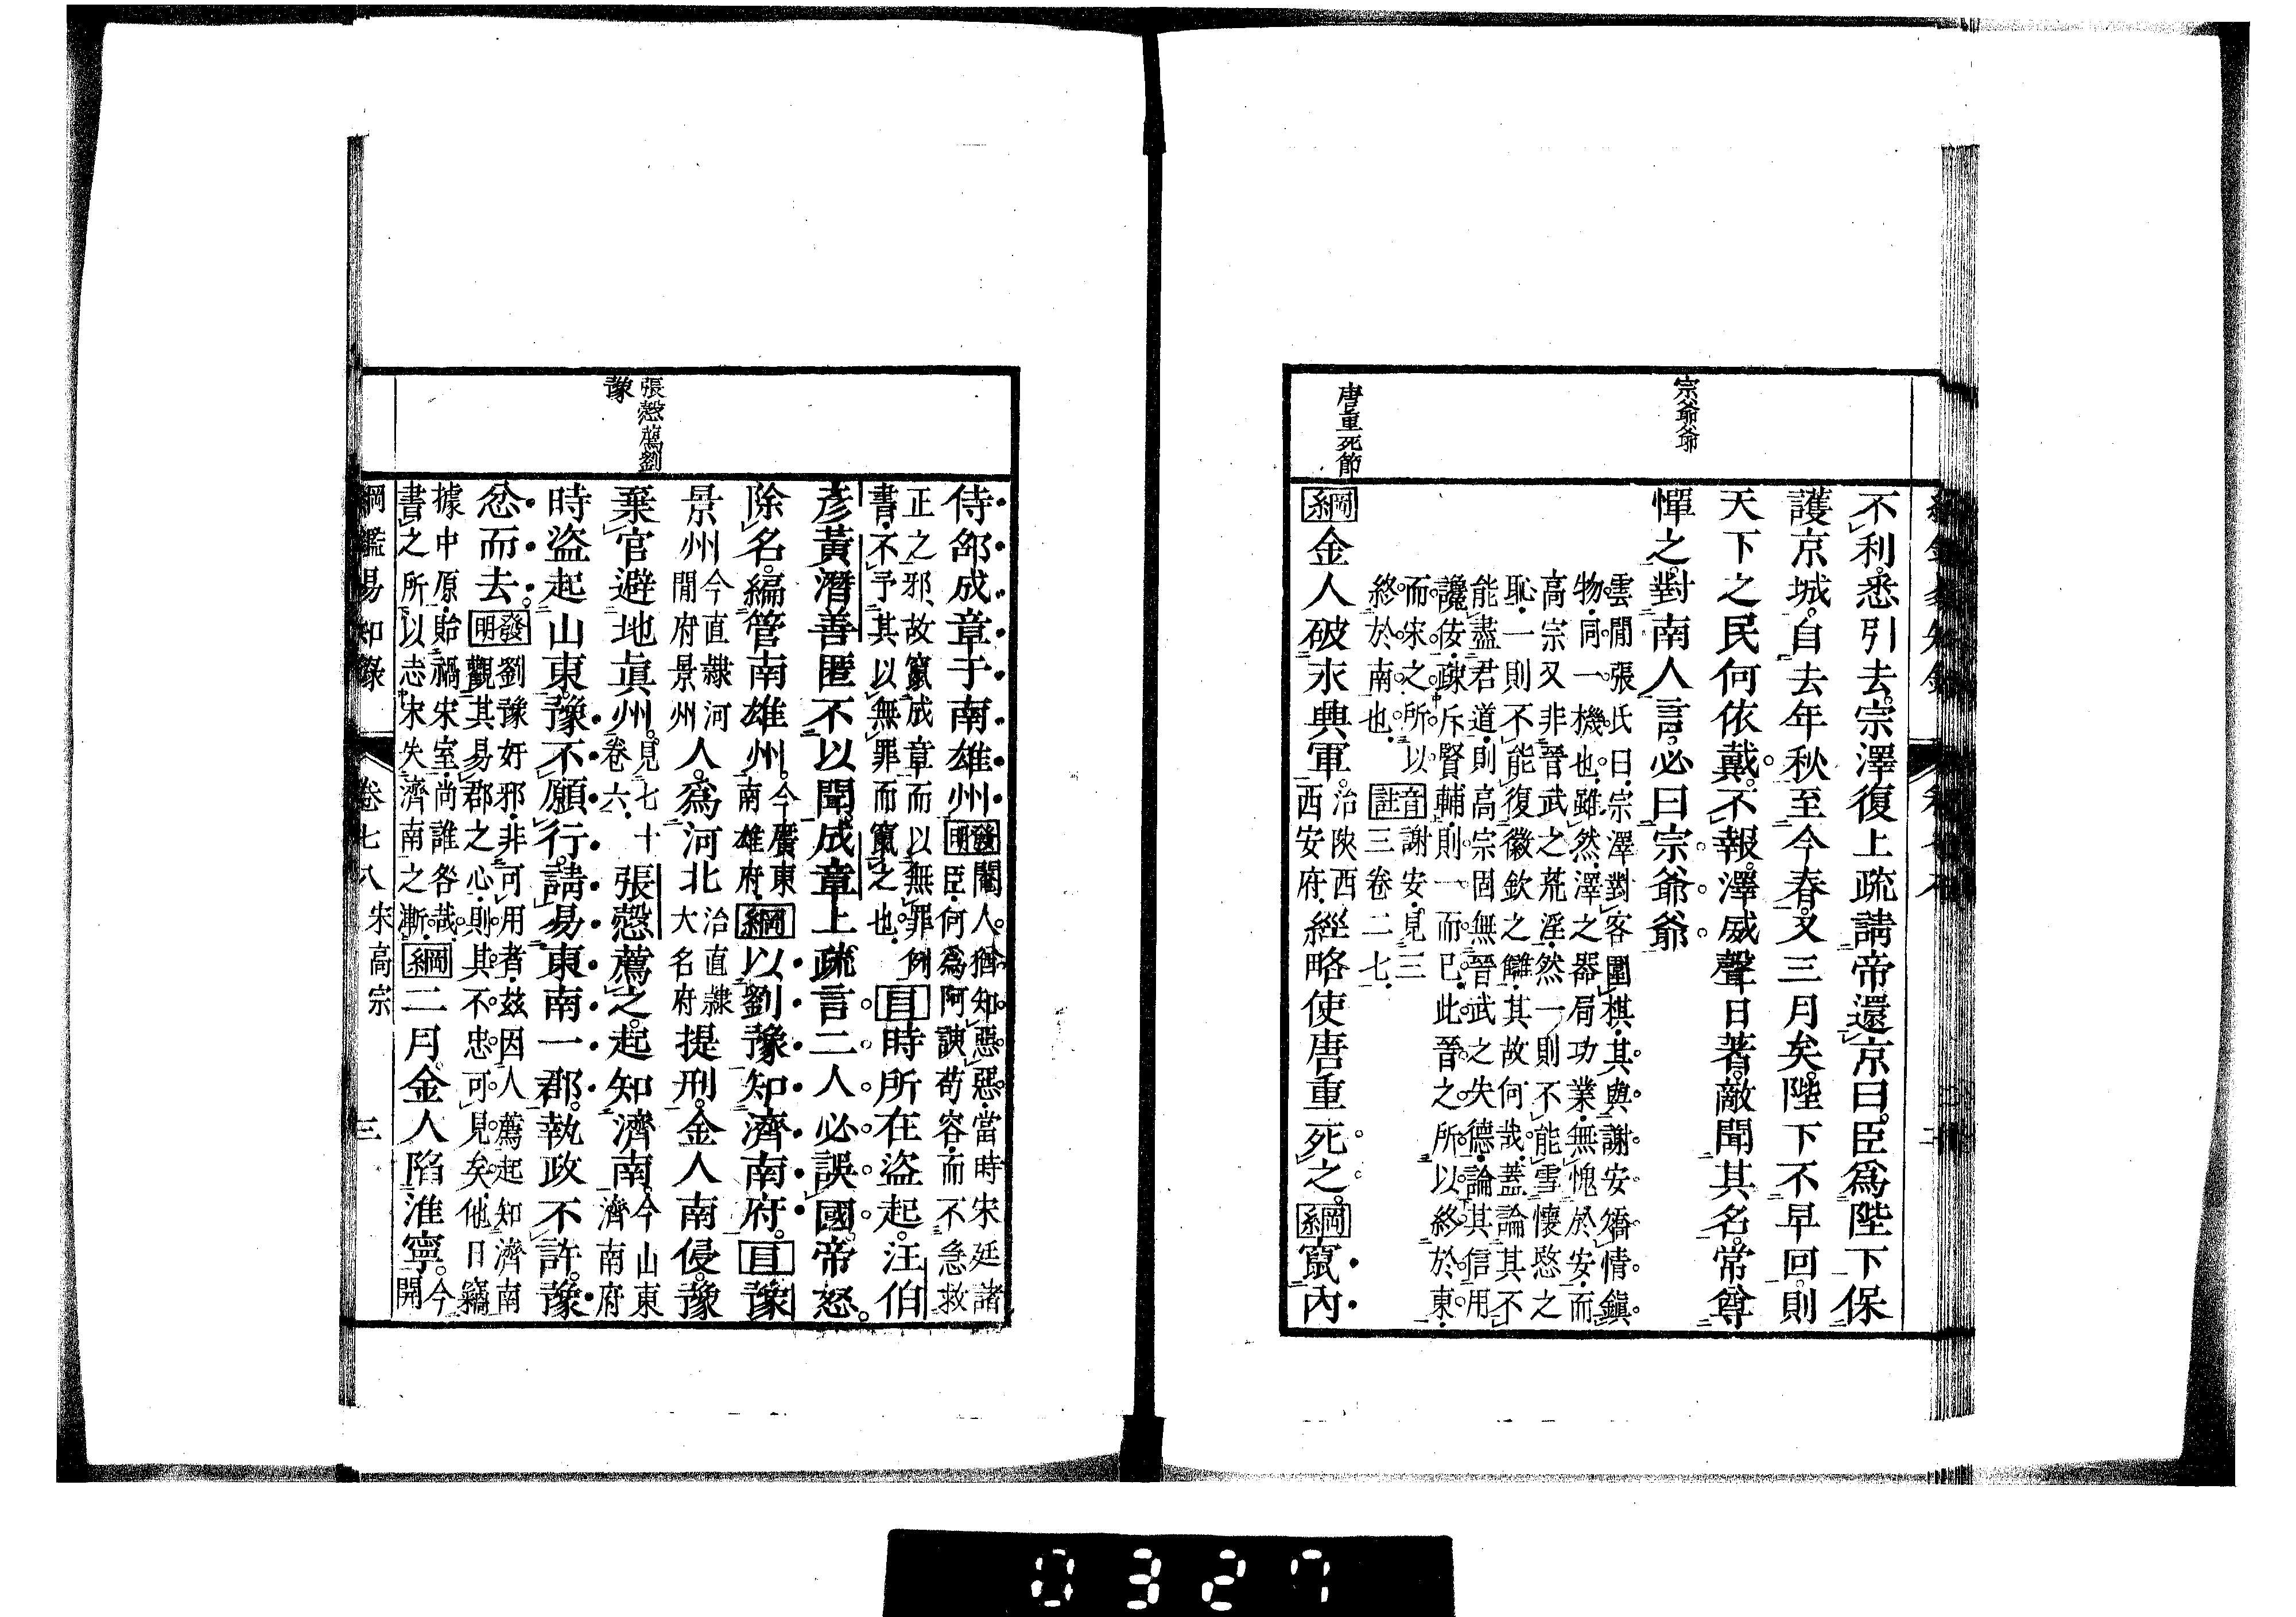 宗爺爺
唐重死節
不利悉引去宗澤復上疏請帝還京曰臣爲陛下保
護京城自去年秋至今春又三月矣陛下不早回則
天下之民何依戴不報澤威聲日著敵聞其名常尊
憚之對南人言必曰宗爺爺
雲閒張氏曰宗澤對客圍棋其與謝安矯情鎭
物同一機也雖然澤之器局功業無愧於安而
高宗又非晉武之荒淫然一則不能雪懷愍之
恥一則不能復徽欽之讎其故何哉蓋論其不
能盡君道則高宗固無晉武之失德論其信用
讒佞疎斥賢輔則一而已此晉之所以終於東
而宋之所以
終於南也
音註
謝安見三
三卷二七
綱金人破永興軍
治陝西
西安府
經略使唐重死之綱竄內
張愨薦劉
豫
侍邵成章于南雄州
發明
閹人猶知惡惡當時宋廷諸
臣何爲阿諛苟容而不急救
正之邪故竄成章而以無罪例
書不予其以無罪而竄之也
目時所在盜起汪伯
彥黃潛善匿不以聞成章上疏言二人必誤國帝怒
除名編管南雄州
今廣東
南雄府
綱以劉豫知濟南府目豫
景州
今直隷河
閒府景州
人爲河北
治直隷
大名府
提刑金人南侵豫
棄官避地眞州
見七十
卷六
張愨薦之起知濟南
今山東
濟南府
時盜起山東豫不願行請易東南一郡執政不許豫
忿而去
發明
劉豫奸邪非可用者茲因人薦起知濟南
觀其易郡之心則其不忠可見矣他日竊
據中原貽禍宋室尚誰咎哉
書之所以志宋失濟南之漸
綱二月金人陷淮寧
今
開
綱鑑易知錄 卷七八 宋高宗 三
0327